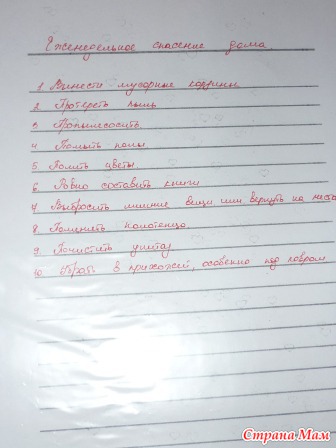 Еженедельное спасение дома
1 Вынести мусорные корзины
2 Протереть пыль
3 Пропылесосить
4 Помыть полы
5 Полить цветы
6 Ровно составить книги
7 Выбросить лишние вещи или вернуть на место
8 Поменять полотенца
9. Почистить унитаз
10. Убрать в прихожей, особенно под ковром
Страна Мам